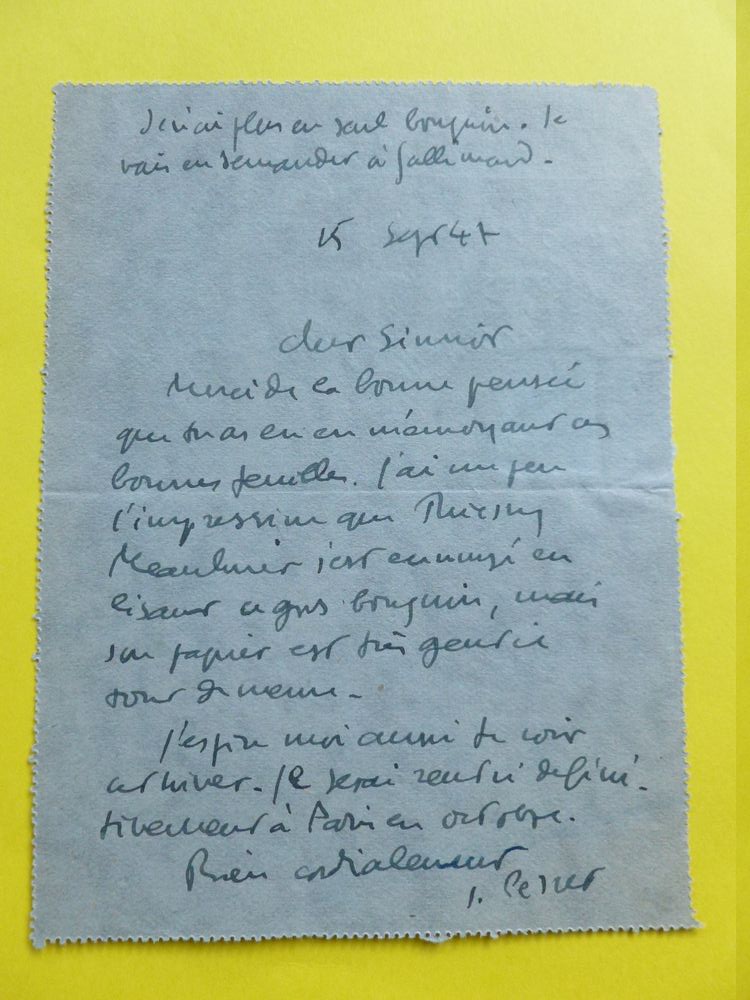 Je n'ai plus un seul bouquin. Je
vais en demander à Gallimard.
15 Sept 47
Cher
Merci de la bonne pensée
que tu as eu en m'envoyant ces
bonnes feuilles. J'ai un peu
l'impression que Thierry
Maulnier s'est ennuyé en
lisant ce gros bouquin, mais
son papier est très gentil
tout de même.
J'espère moi aussi te voir
cet hiver. Je serai rentré défini-
tivement à Paris en octobre.
Bien cordialement
J. Perret